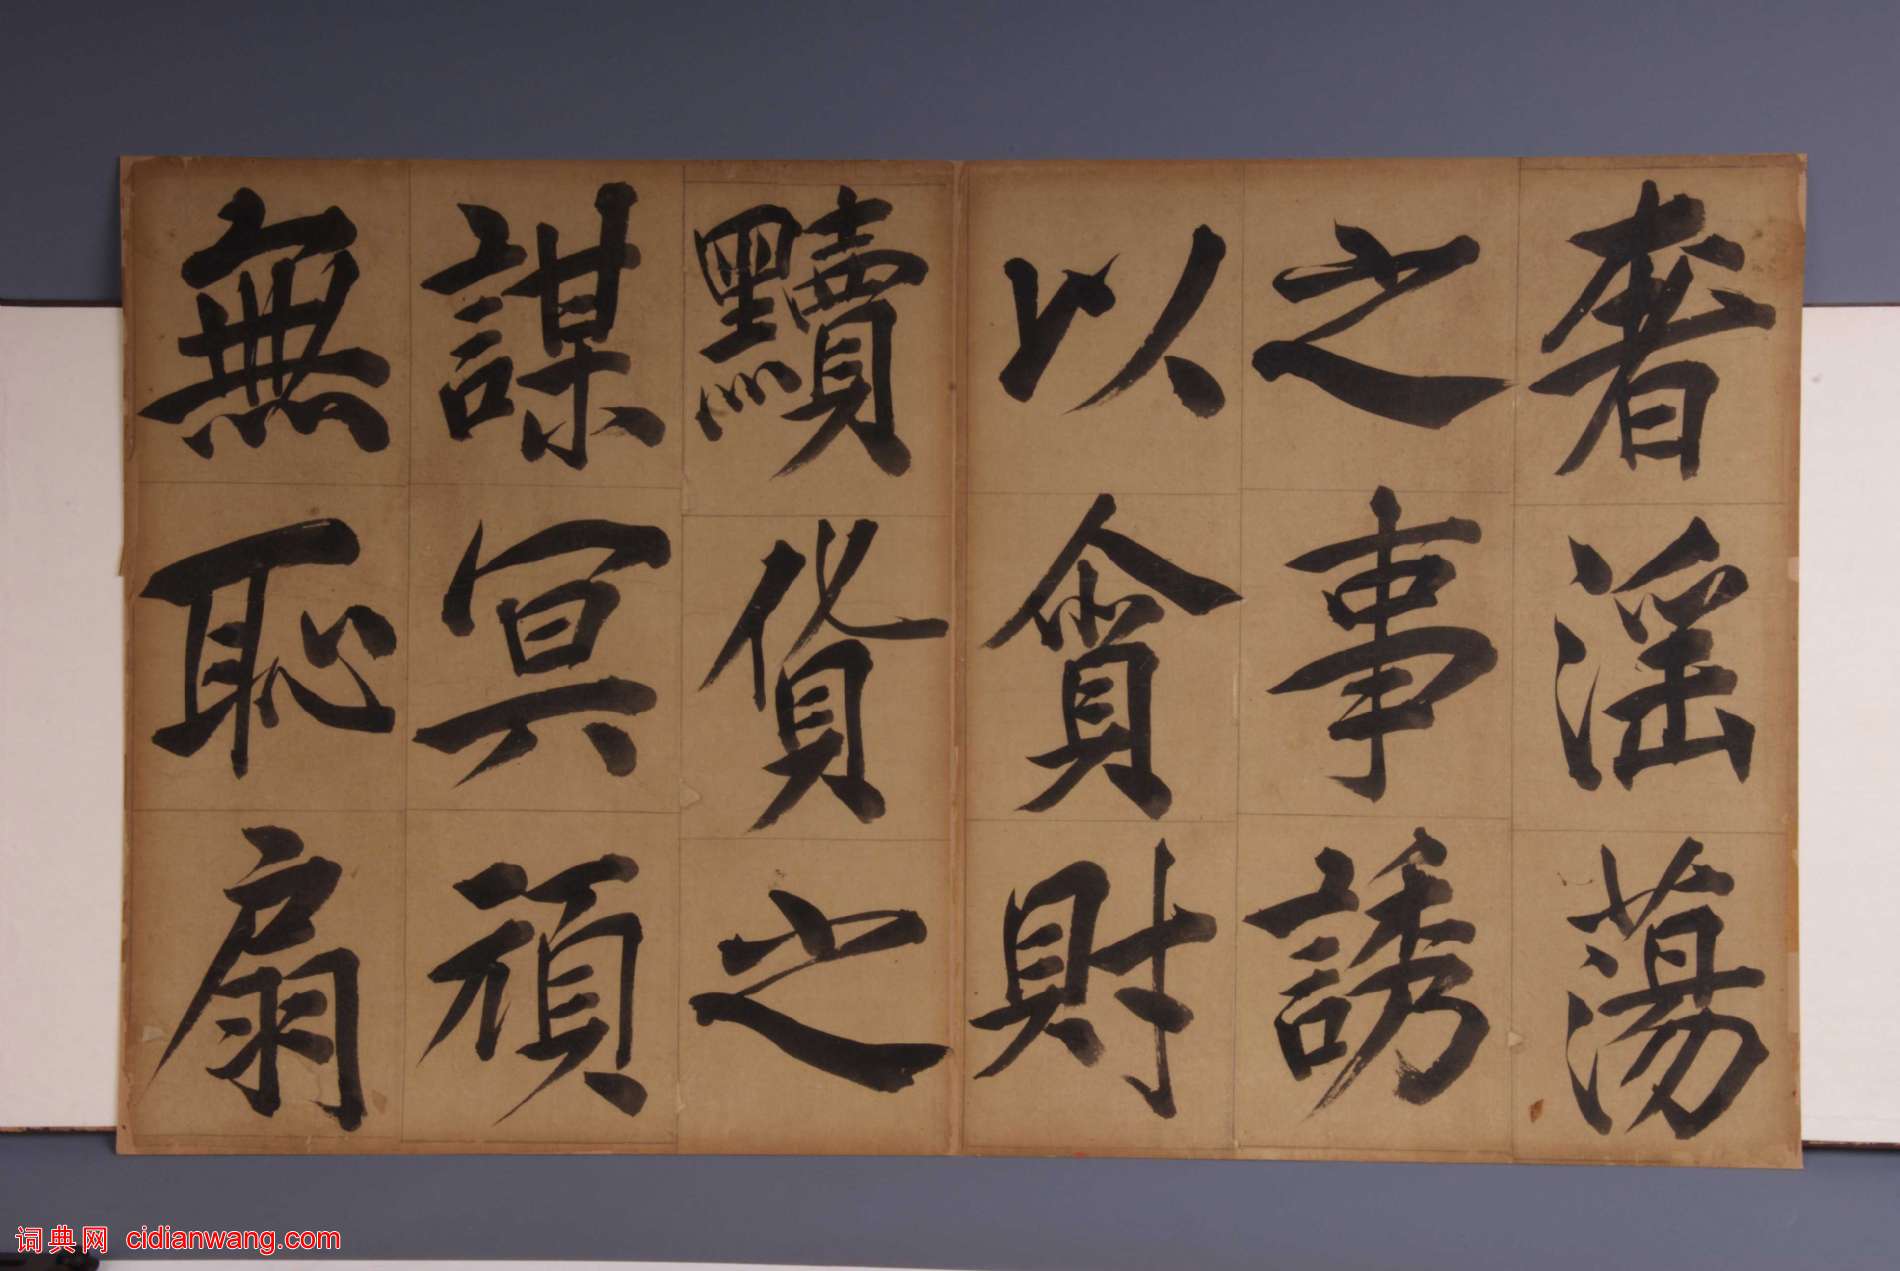 奢淫蕩
之事誘
以貪財
黷貨之
謀冥頑
無恥扇
词典网 cidianwang.com